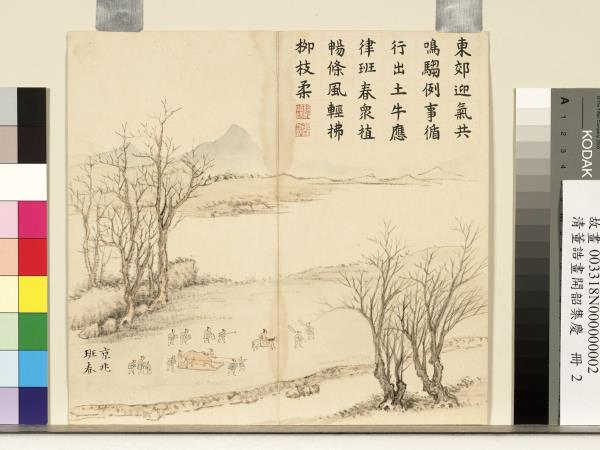 東郊迎氣共
鳴騶例事循
行出土牛應
律班春衆植
暢條風輕拂
柳枝柔
京兆
班春
A 1 2 3 4
KODAK
故畫003318N000000002
清董誥畫開韶集慶 冊 2